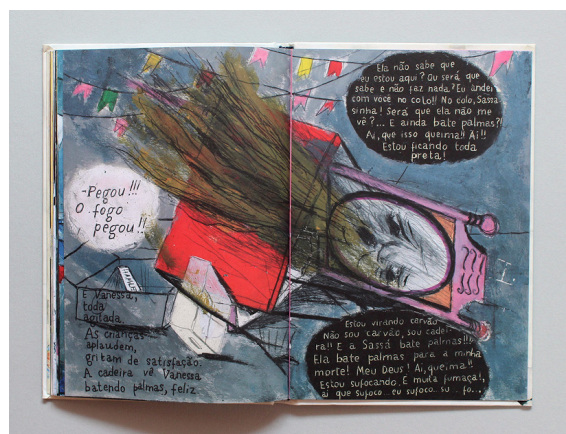 -Pegou!!!
O fogo
pegou!!
E Vanessa,
toda
agitada.
As crianças
aplaudem,
gritam de satisfação.
A cadeira vê Vanessa
batendo palmas, feliz.
Ela não sabe que
eu estou aqui? Ou será que
sabe e não faz nada? Eu andei
com você no colo!! No colo, Sassa-
sinha! Será que ela não me
vê?... E ainda bate palmas?!
Ai, que isso queima!! Ai!!
Estou ficando toda
preta!
Estou virando carvão
Não sou carvão, sou cadei-
ra!! E a Sassá bate palmas!!!
Ela bate palmas para a minha
morte! Meu Deus! Ai, queima!!
Estou sufocando. E muita fumaça!,
ai que sufoco eu sufoco su.. fo...